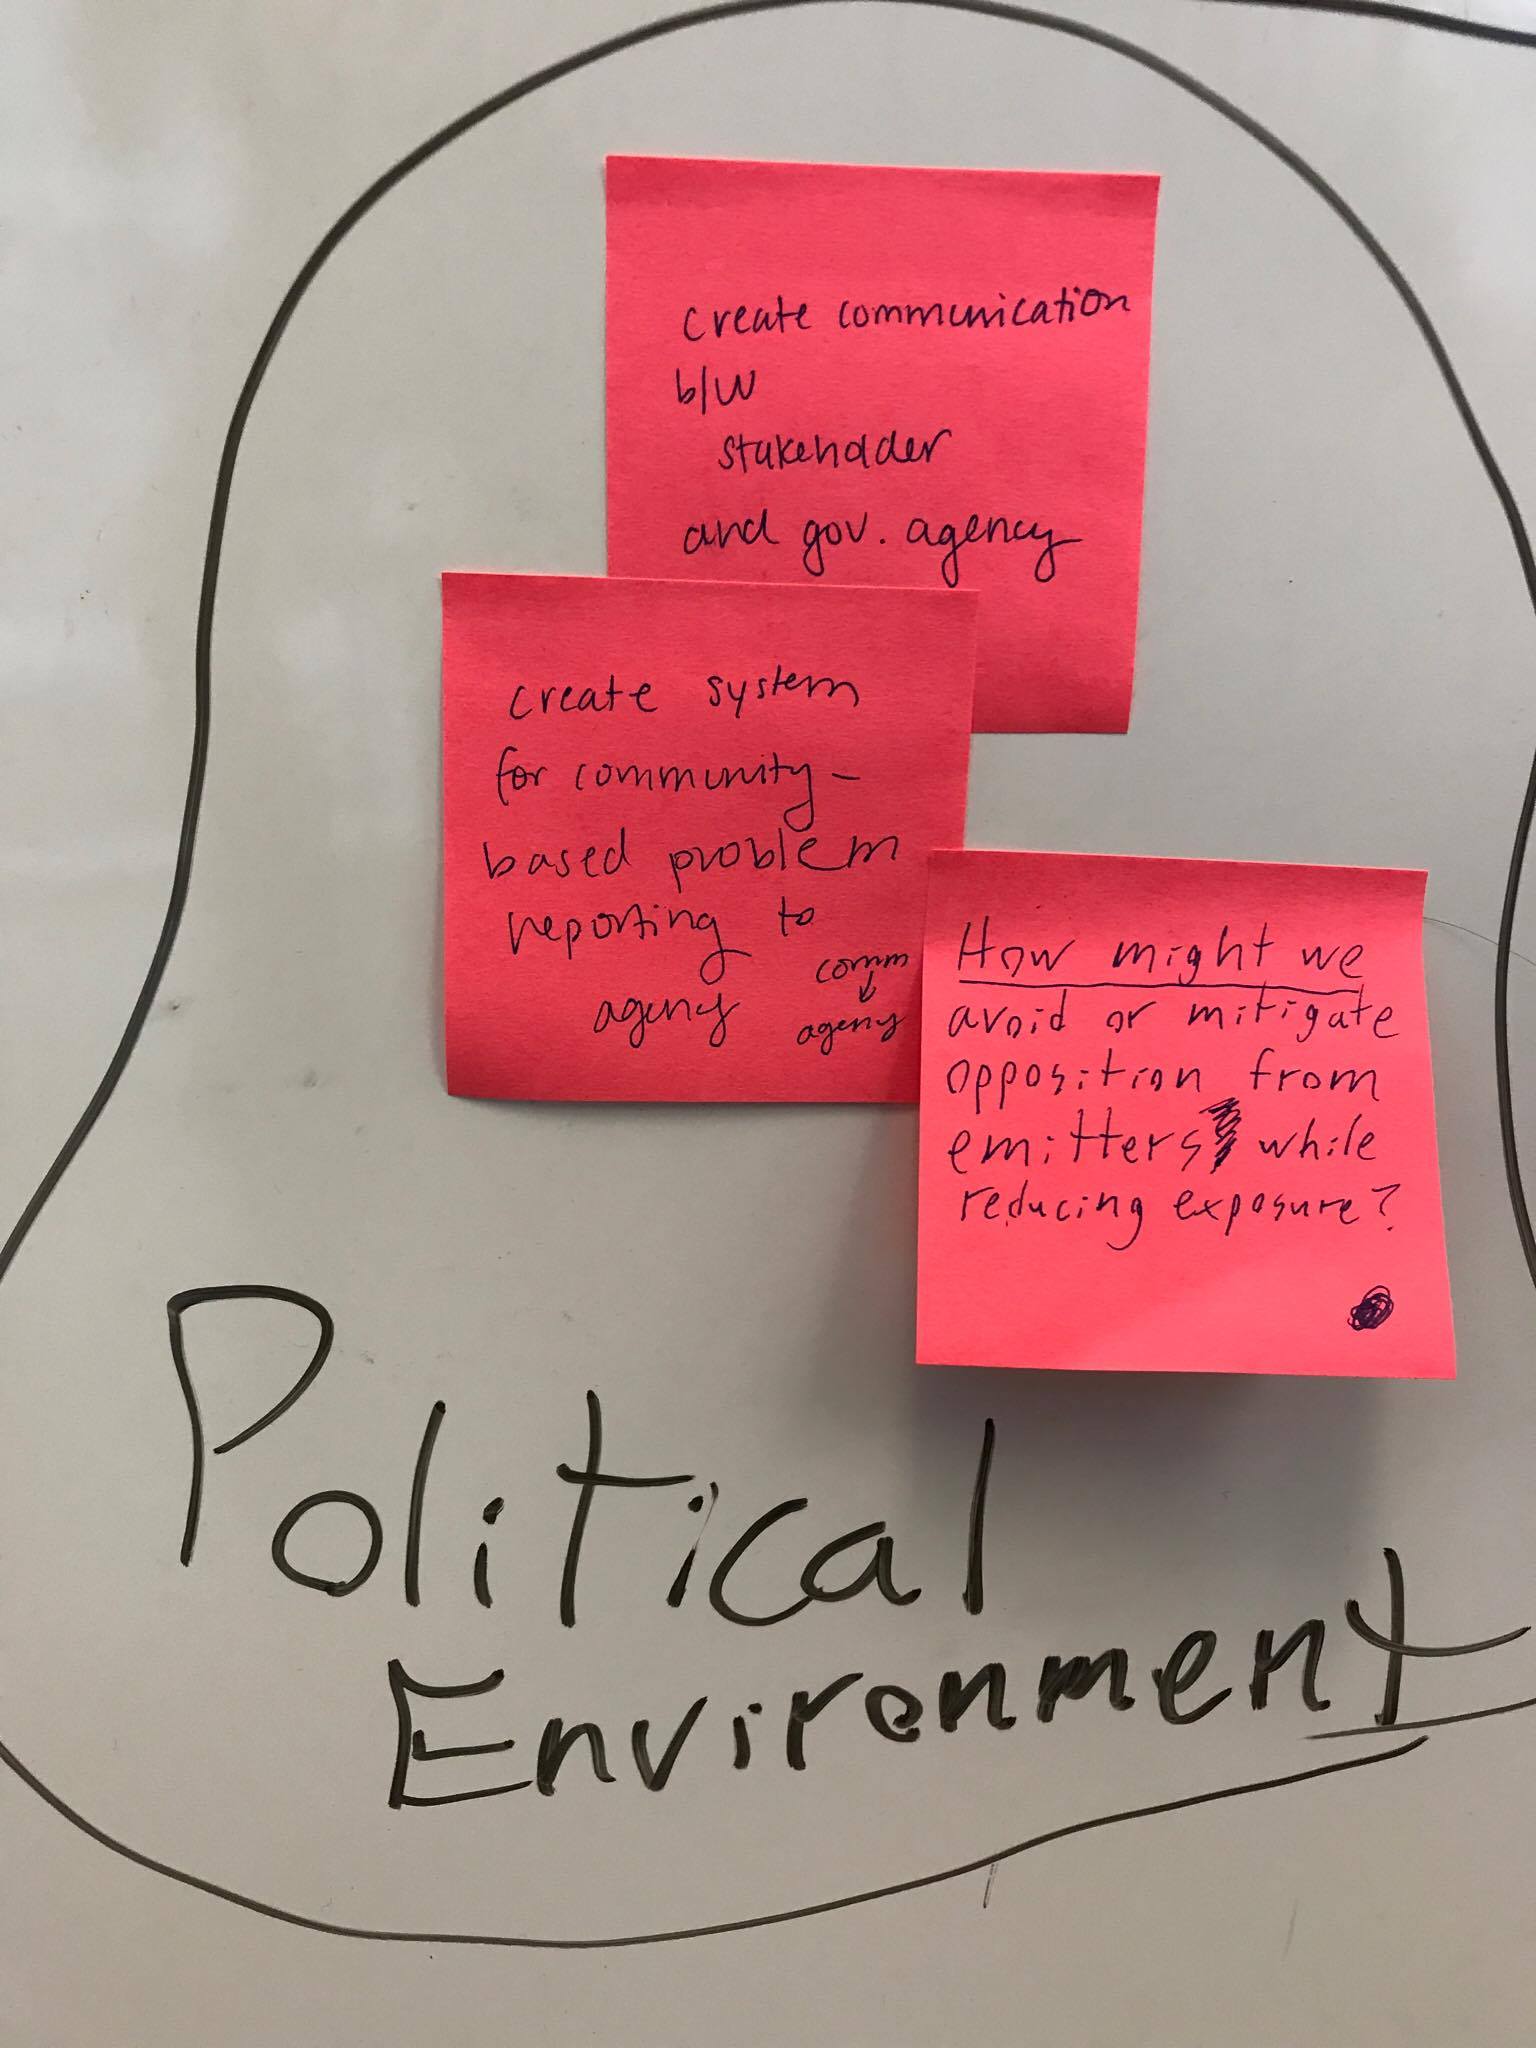 create communication
b/w
stakeholder
and gov. agency
create system
for community-
based problem
reporting to
agency
comm
↓
agency
How might we
avoid or mitigate
opposition from
emitters while
reducing exposure?
Political
Environment